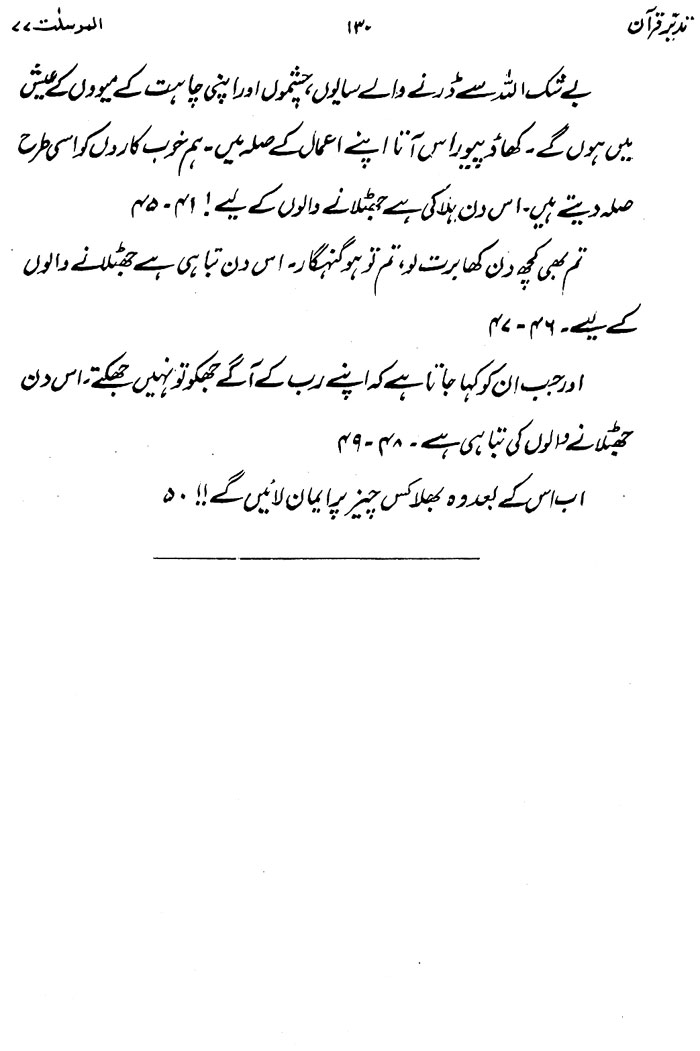 تدبرِ قرآن ۱۳۰ المرسلٰت ۷۷
بے شک اللہ سے ڈرنے والے سایوں، چشموں اور اپنی چاہت کے میووں کے عیش
میں ہوں گے۔ کھاؤ پیو راس آتا اپنے اعمال کے صلہ میں۔ ہم خوب کاروں کو اسی طرح
صلہ دیتے ہیں۔ اس دن ہلاکی ہے جھٹلانے والوں کے لیے! ۴۱-۴۵
تم بھی کچھ دن کھا برت لو، تم تو ہو گنہگار۔ اس دن تباہی ہے جھٹلانے والوں
کے لیے۔ ۴۶-۴۷
اور جب ان کو کہا جاتا ہے کہ اپنے رب کے آگے جھکو تو نہیں جھکتے۔ اس دن
جھٹلانے والوں کی تباہی ہے۔ ۴۸-۴۹
اب اس کے بعد وہ بھلا کس چیز پر ایمان لائیں گے!! ۵۰